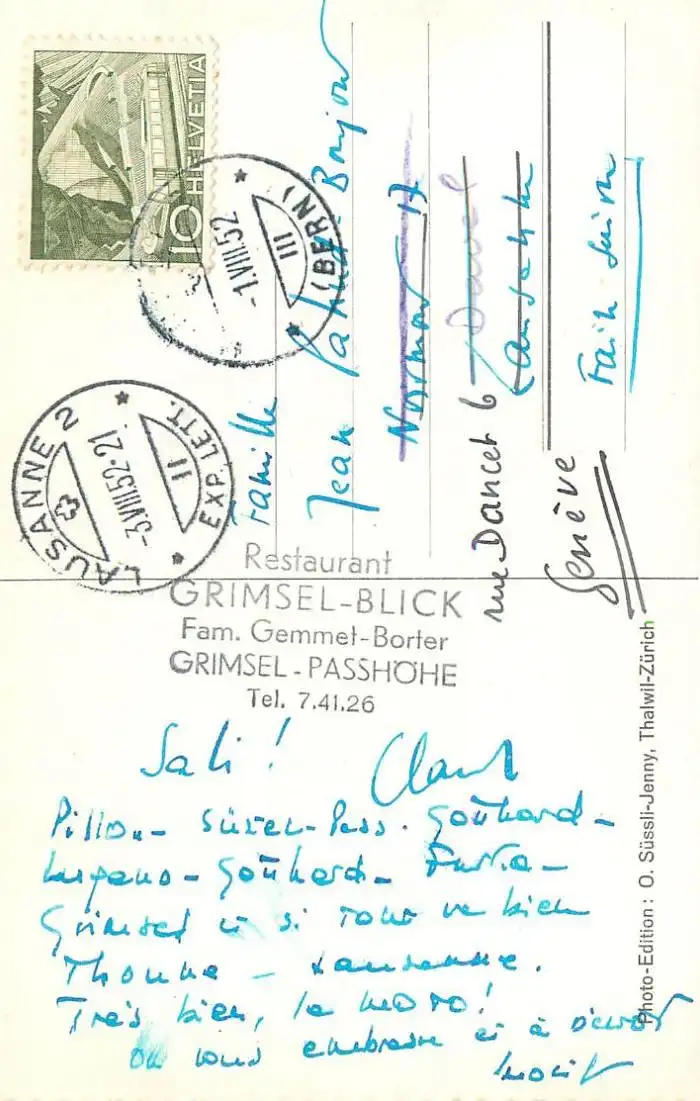 HELVETIA
10
-1.VIII.52
III
(BERN)
LAUSANNE 2
-3.VIII.52 21
II
EXP. LETT.
Famille
Jean
Bonjour
Davel
rue Dancet 6
Lausanne
Genève
Restaurant
GRIMSEL-BLICK
Fam. Gemmet-Borter
GRIMSEL-PASSHÖHE
Tel. 7.41.26
Photo-Edition: O. Süssli-Jenny, Thalwil-Zürich
Sali!
Pillon - Susten-Pass. Gotthard -
Lugano - Gotthard - Furka -
Grimsel et si tout va bien
Thoune - Lausanne.
Très bien, la moto!
On vous embrasse et à bientôt